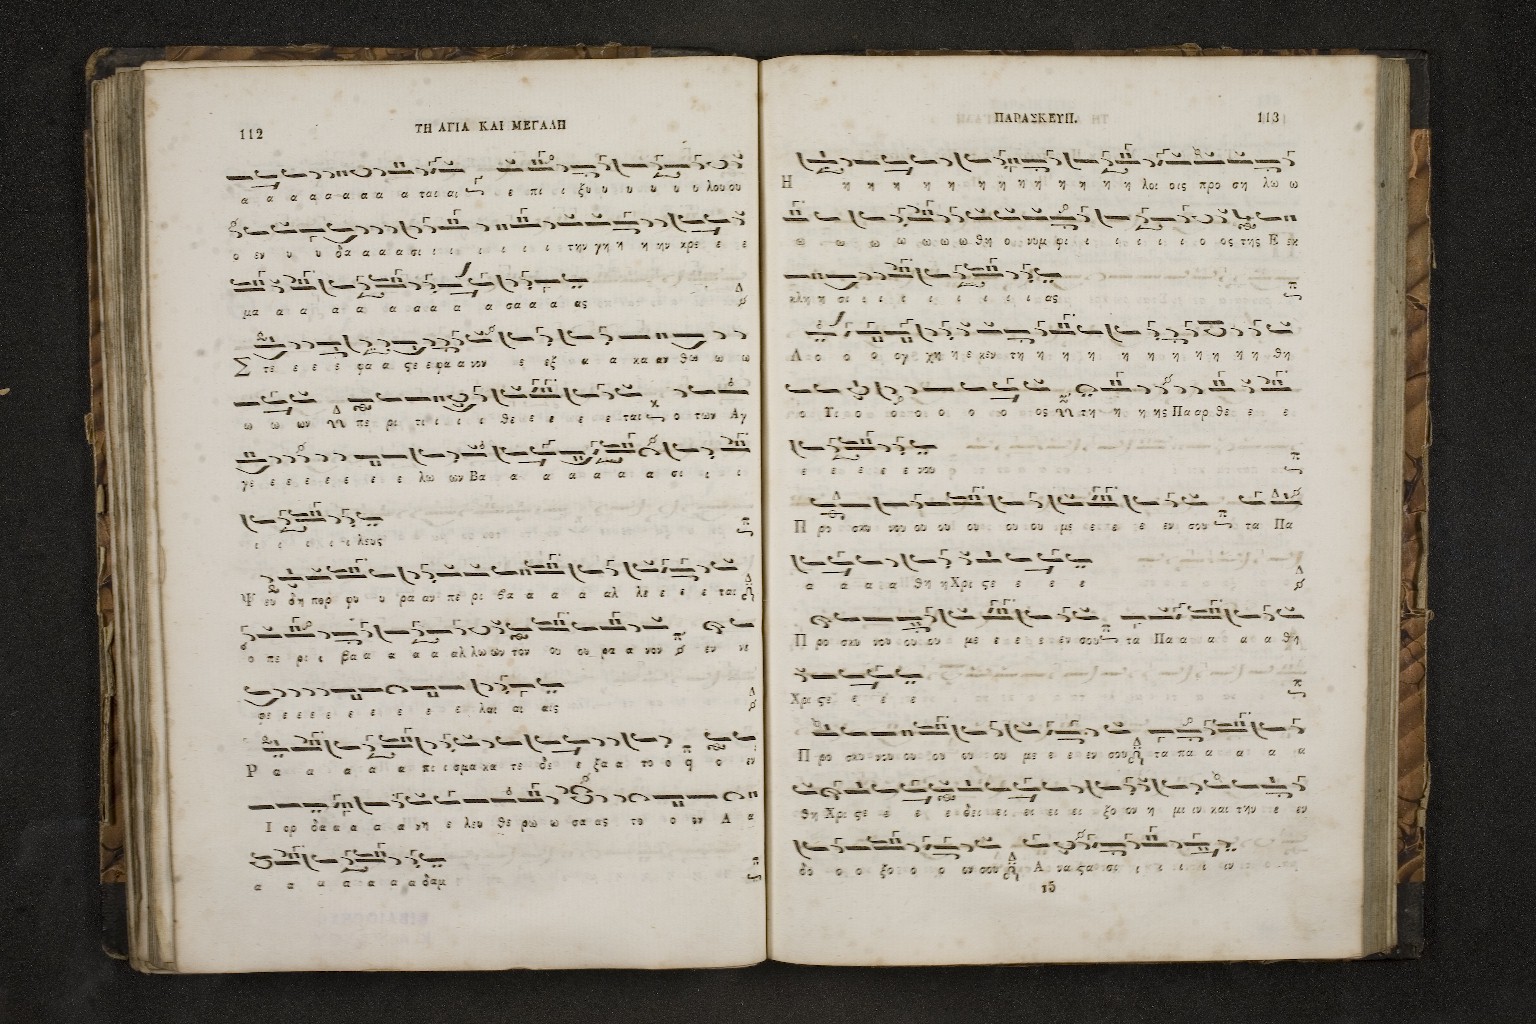 112
ΤΗ ΑΓΙΑ ΚΑΙ ΜΕΓΑΛΗ
α α α α α α α α α ται αι ε πι ι ξυ υ υ υ υ υ λου ου
ο εν υ υ δα α α α σι ι ι ι ι ι την γη η η ην κρε ε ε
μα α α α α α α α α α σα α α ας
Σ τε ε ε ε φα α ςε ε φα α νον ε εξ α α κα αν θω ω ω
ω ω ων πε ρι τι ι ι ι θε ε ε ε ε ται ο των Αγ
γε ε ε ε ε ε ε λω ων Βα α α α α α α σι ι ι
ι ι ι ι ι λευς
Ψ ευ δη πορ φυ υ ρα αν πε ρι βα α α α αλ λε ε ε ε ται
ο πε ρι ι βα α α α α αλ λω ων τον ου ου ρα α νον εν νε
φε ε ε ε ε ε ε ε ε λαι αι αις
Ρ α α α α α πι ι σμα κα τε δε ε ξα α το ο ο ο εν
Ι ορ δα α α α α νη ε λευ θε ρω ω σα ας το ο ον Α α
α α α α α α α δαμ
ΠΑΡΑΣΚΕΥΗ.
113
Η η η η η η η η η η η η η λοι οις προ ση λω ω
ω ω ω ω ω ω ω θη ο νυμ φι ι ι ι ι ι ο ος της Ε εκ
κλη η σι ι ι ι ι ι ι ι ας
Λ ο ο ο ογ χη η ε κεν τη η η η η η η η η η θη
ο Υι ο ο οι ο ο ο ος τη η η ης Πα αρ θε ε ε
ε ε ε ε ε νου
Π ρο σκυ νου ου ου ου ου ου με ε ε ε εν σου τα Πα
α α α α θη η Χρι ςε ε ε ε
Π ρο σκυ νου ου ου με ε ε ε εν σου τα Πα α α α α θη
Χρι ςε ε ε ε
Π ρο σκυ νου ου ου ου ου με ε ε εν σου τα πα α α α α
θη Χρι ςε ε ε ε δει ει ει ει ει ξο ον η μι ιν και την ε εν
δο ο ο ξο ο ο ον σου Α να ςα σι ι ι ι ι ιν
15